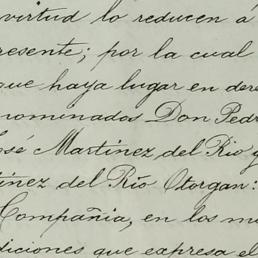 virtud lo reducen á
resente; por la cual
que haya lugar en dere
nominados Don Pedr
osé Martinez del Rio y
tinez del Río Otorgan:
Compañia, en los m
diciones que expresa el